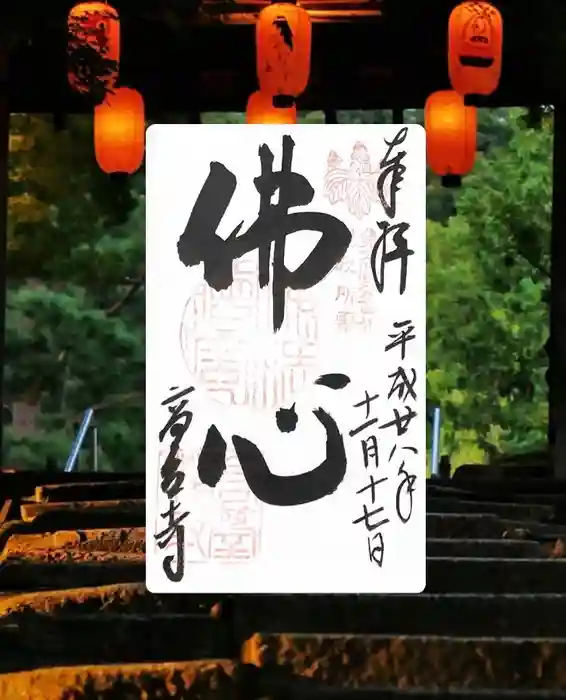 奉拝
平成廿八年
十一月十七日
佛心
高台寺